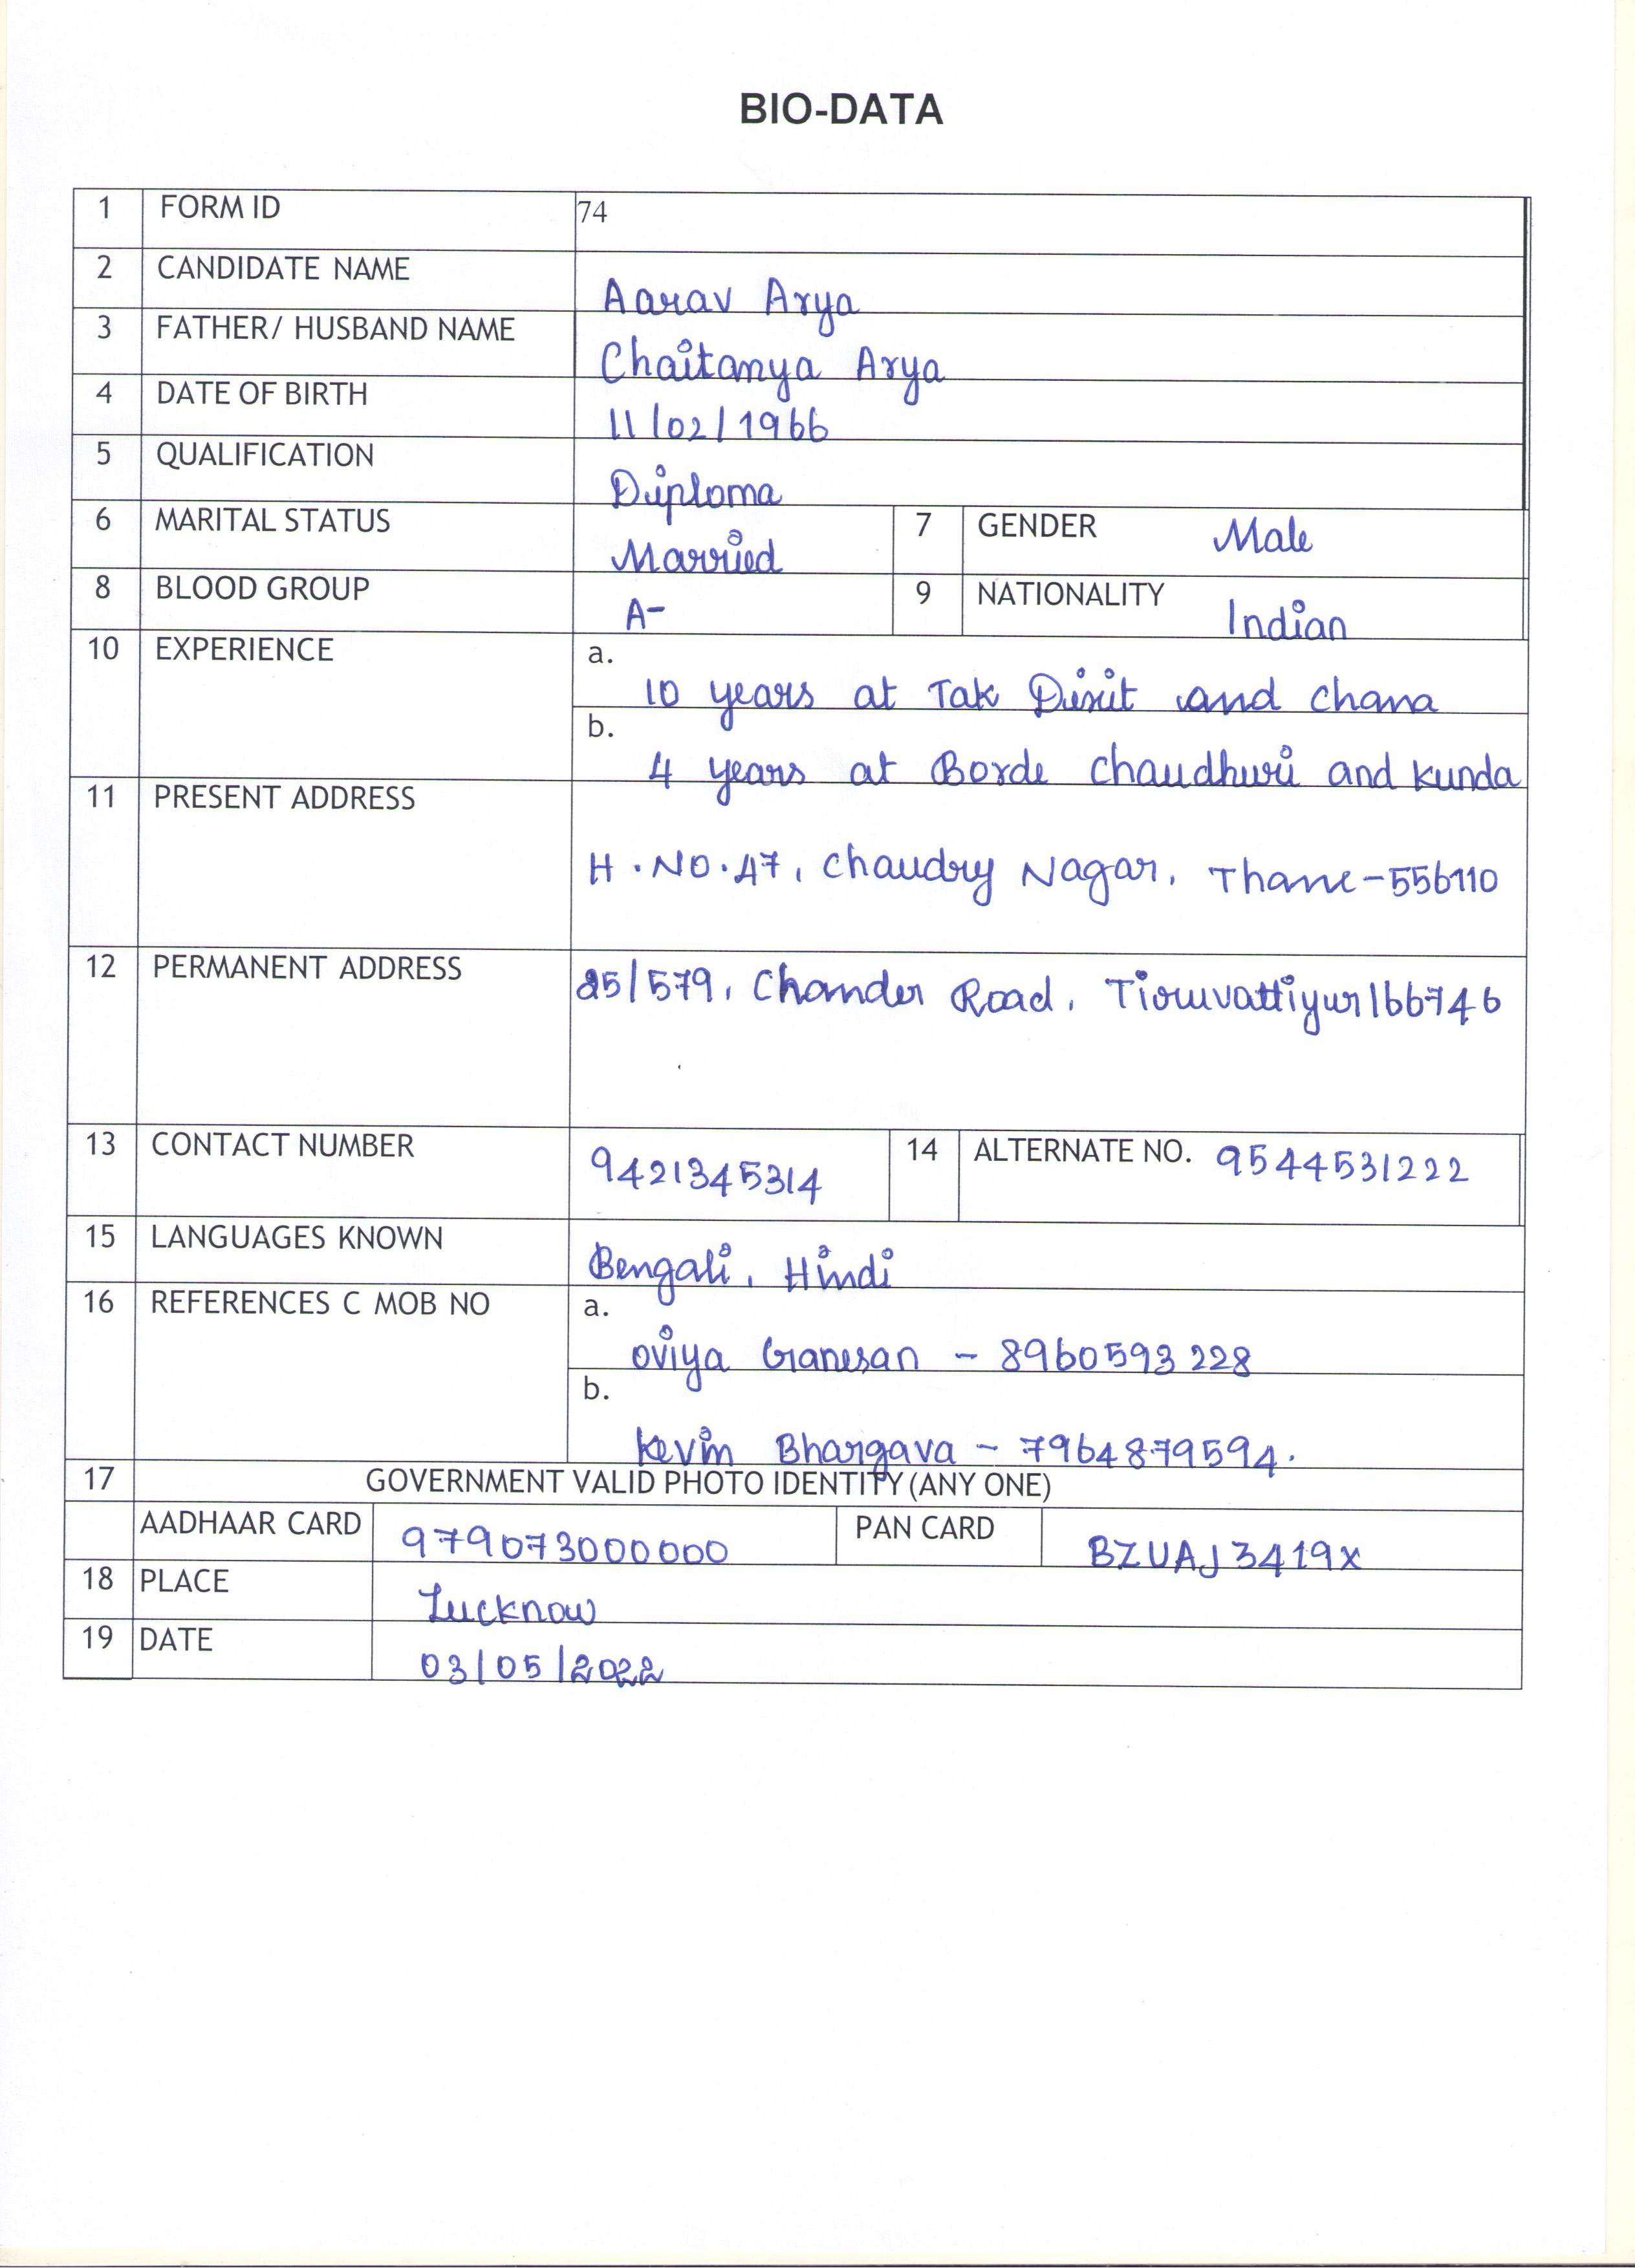 BIO-DATA
1 FORM ID 74
2 CANDIDATE NAME Aarav Arya
3 FATHER/ HUSBAND NAME Chaitanya Arya
4 DATE OF BIRTH 11/02/1966
5 QUALIFICATION Diploma
6 MARITAL STATUS Married 7 GENDER Male
8 BLOOD GROUP A- 9 NATIONALITY Indian
10 EXPERIENCE a. 10 years at Tak Dixit and Chana
b. 4 years at Borde Chaudhuri and Kunda
11 PRESENT ADDRESS
H.NO.47, Chaudry Nagar, Thane-556110
12 PERMANENT ADDRESS 25/579, Chander Road, Tiruvottiyur 166746
13 CONTACT NUMBER 9421345314 14 ALTERNATE NO. 9544531222
15 LANGUAGES KNOWN Bengali, Hindi
16 REFERENCES C MOB NO a. Oviya Ganesan - 8960593228
b. Kevin Bhargava - 7964879594.
17 GOVERNMENT VALID PHOTO IDENTITY (ANY ONE)
AADHAAR CARD 979073000000 PAN CARD BZUAJ3419X
18 PLACE Lucknow
19 DATE 03/05/2022